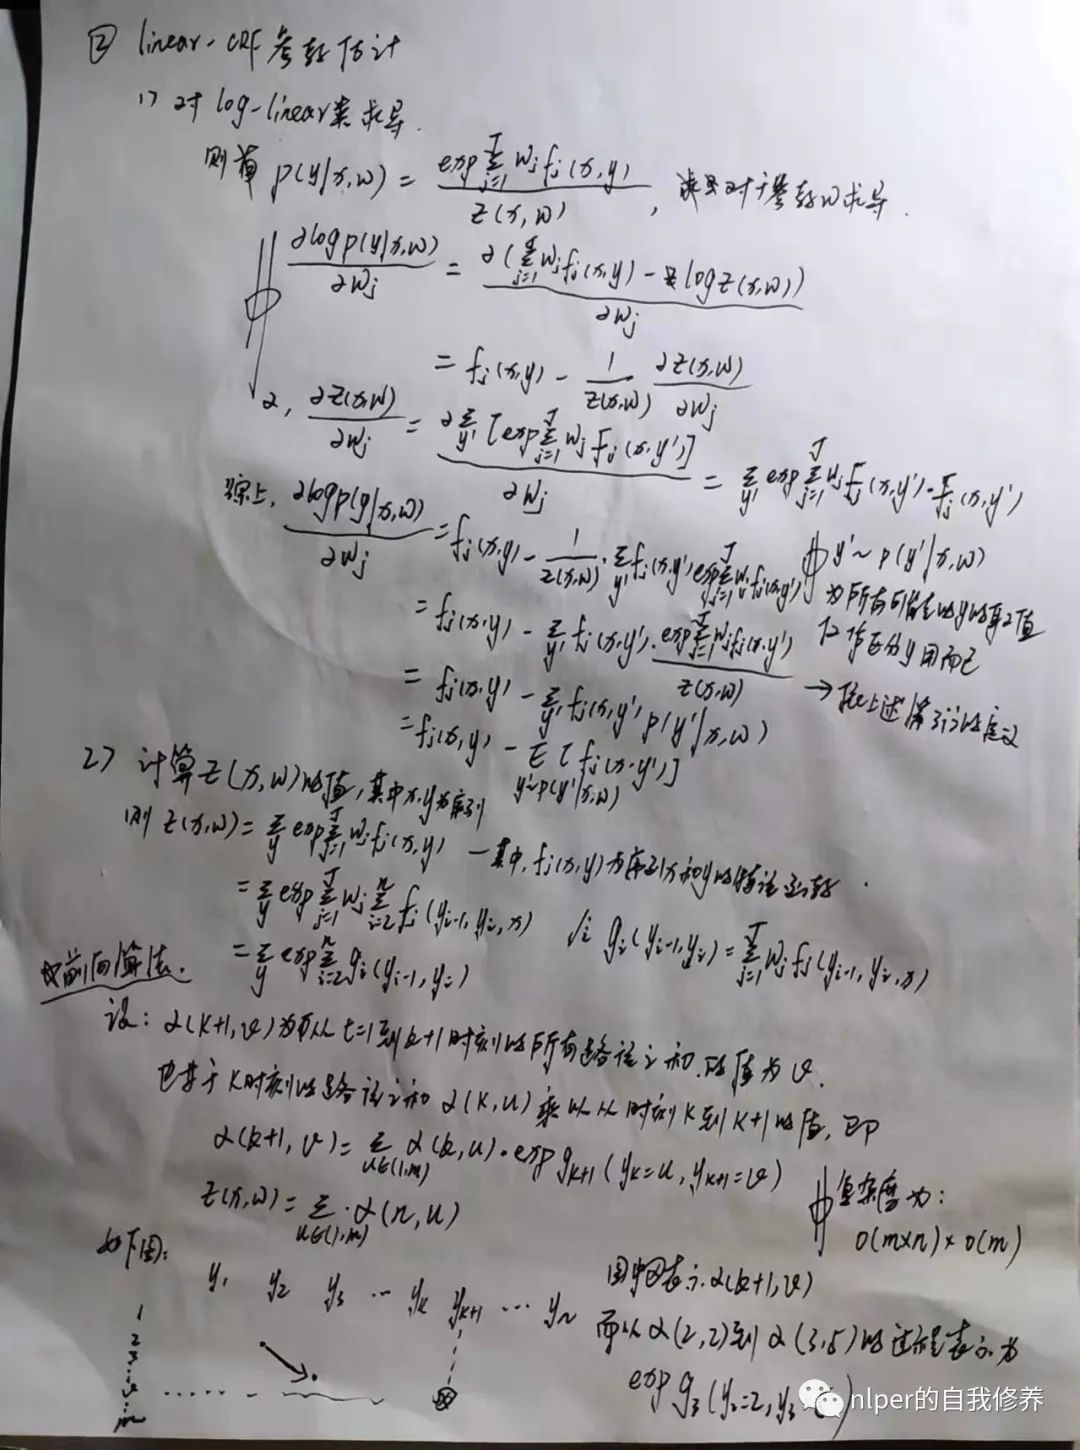 ② linear-CRF参数估计
1) 对log-linear类求导.
则有 p(y|x,w) = exp∑_{j=1}^{J} w_j f_j(x,y) / Z(x,w), 求只对于参数w求导.
∂log p(y|x,w) / ∂w_j = ∂(∑_{j=1}^{J} w_j f_j(x,y) - log Z(x,w)) / ∂w_j
= f_j(x,y) - 1/Z(x,w) ∂Z(x,w)/∂w_j
2, ∂Z(x,w)/∂w_j = ∂∑_{y'}[exp∑_{j=1}^{J} w_j F_j(x,y')] / ∂w_j = ∑_{y'} exp∑_{j=1}^{J} w_j F_j(x,y')·F_j(x,y')
综上, ∂log p(y|x,w)/∂w_j = f_j(x,y) - 1/Z(x,w)·∑_{y'} f_j(x,y') exp∑_{j=1}^{J} w_j f_j(x,y')
y'~p(y'|x,w)
为所有可能的y的取值
区分y而已
= f_j(x,y) - ∑_{y'} f_j(x,y')·exp∑_{j=1}^{J} w_j f_j(x,y') / Z(x,w)
→ 上述第1)的定义
= f_j(x,y) - ∑_{y'} f_j(x,y') p(y'|x,w)
= f_j(x,y) - E_{y'~p(y'|x,w)}[f_j(x,y')]
2) 计算Z(x,w)的值,其中x,y为序列
则 Z(x,w) = ∑_y exp∑_{j=1}^{J} w_j f_j(x,y) — 其中,f_j(x,y)为序列x和y的特征函数.
= ∑_y exp∑_{j=1}^{J} w_j ∑_{i=2}^{n} f_j(y_{i-1},y_i,x) 记 g_i(y_{i-1},y_i) = ∑_{j=1}^{J} w_j f_j(y_{i-1},y_i,x)
= ∑_y exp∑_{i=2}^{n} g_i(y_{i-1},y_i)
前向算法.
设: α(k+1,v)为从t=1到k+1时刻的所有路径之和,的值为v.
也等于k时刻的路径之和α(k,u)乘以从时刻k到k+1的值,即
α(k+1,v) = ∑_{u∈(1,m)} α(k,u)·exp g_{k+1}(y_k=u,y_{k+1}=v)
Z(x,w) = ∑_{u∈(1,m)}·α(n,u)
复杂度为:
O(m×n)×O(m)
如下图:
y_1 y_2 y_3 … y_k y_{k+1} … y_n
1
2
3
⋮
v
⋮
m
图中⊗表示α(k+1,v)
而从α(2,2)到α(3,5)的过程表示为
exp g_3(y_2=2,y_3
nlper的自我修养